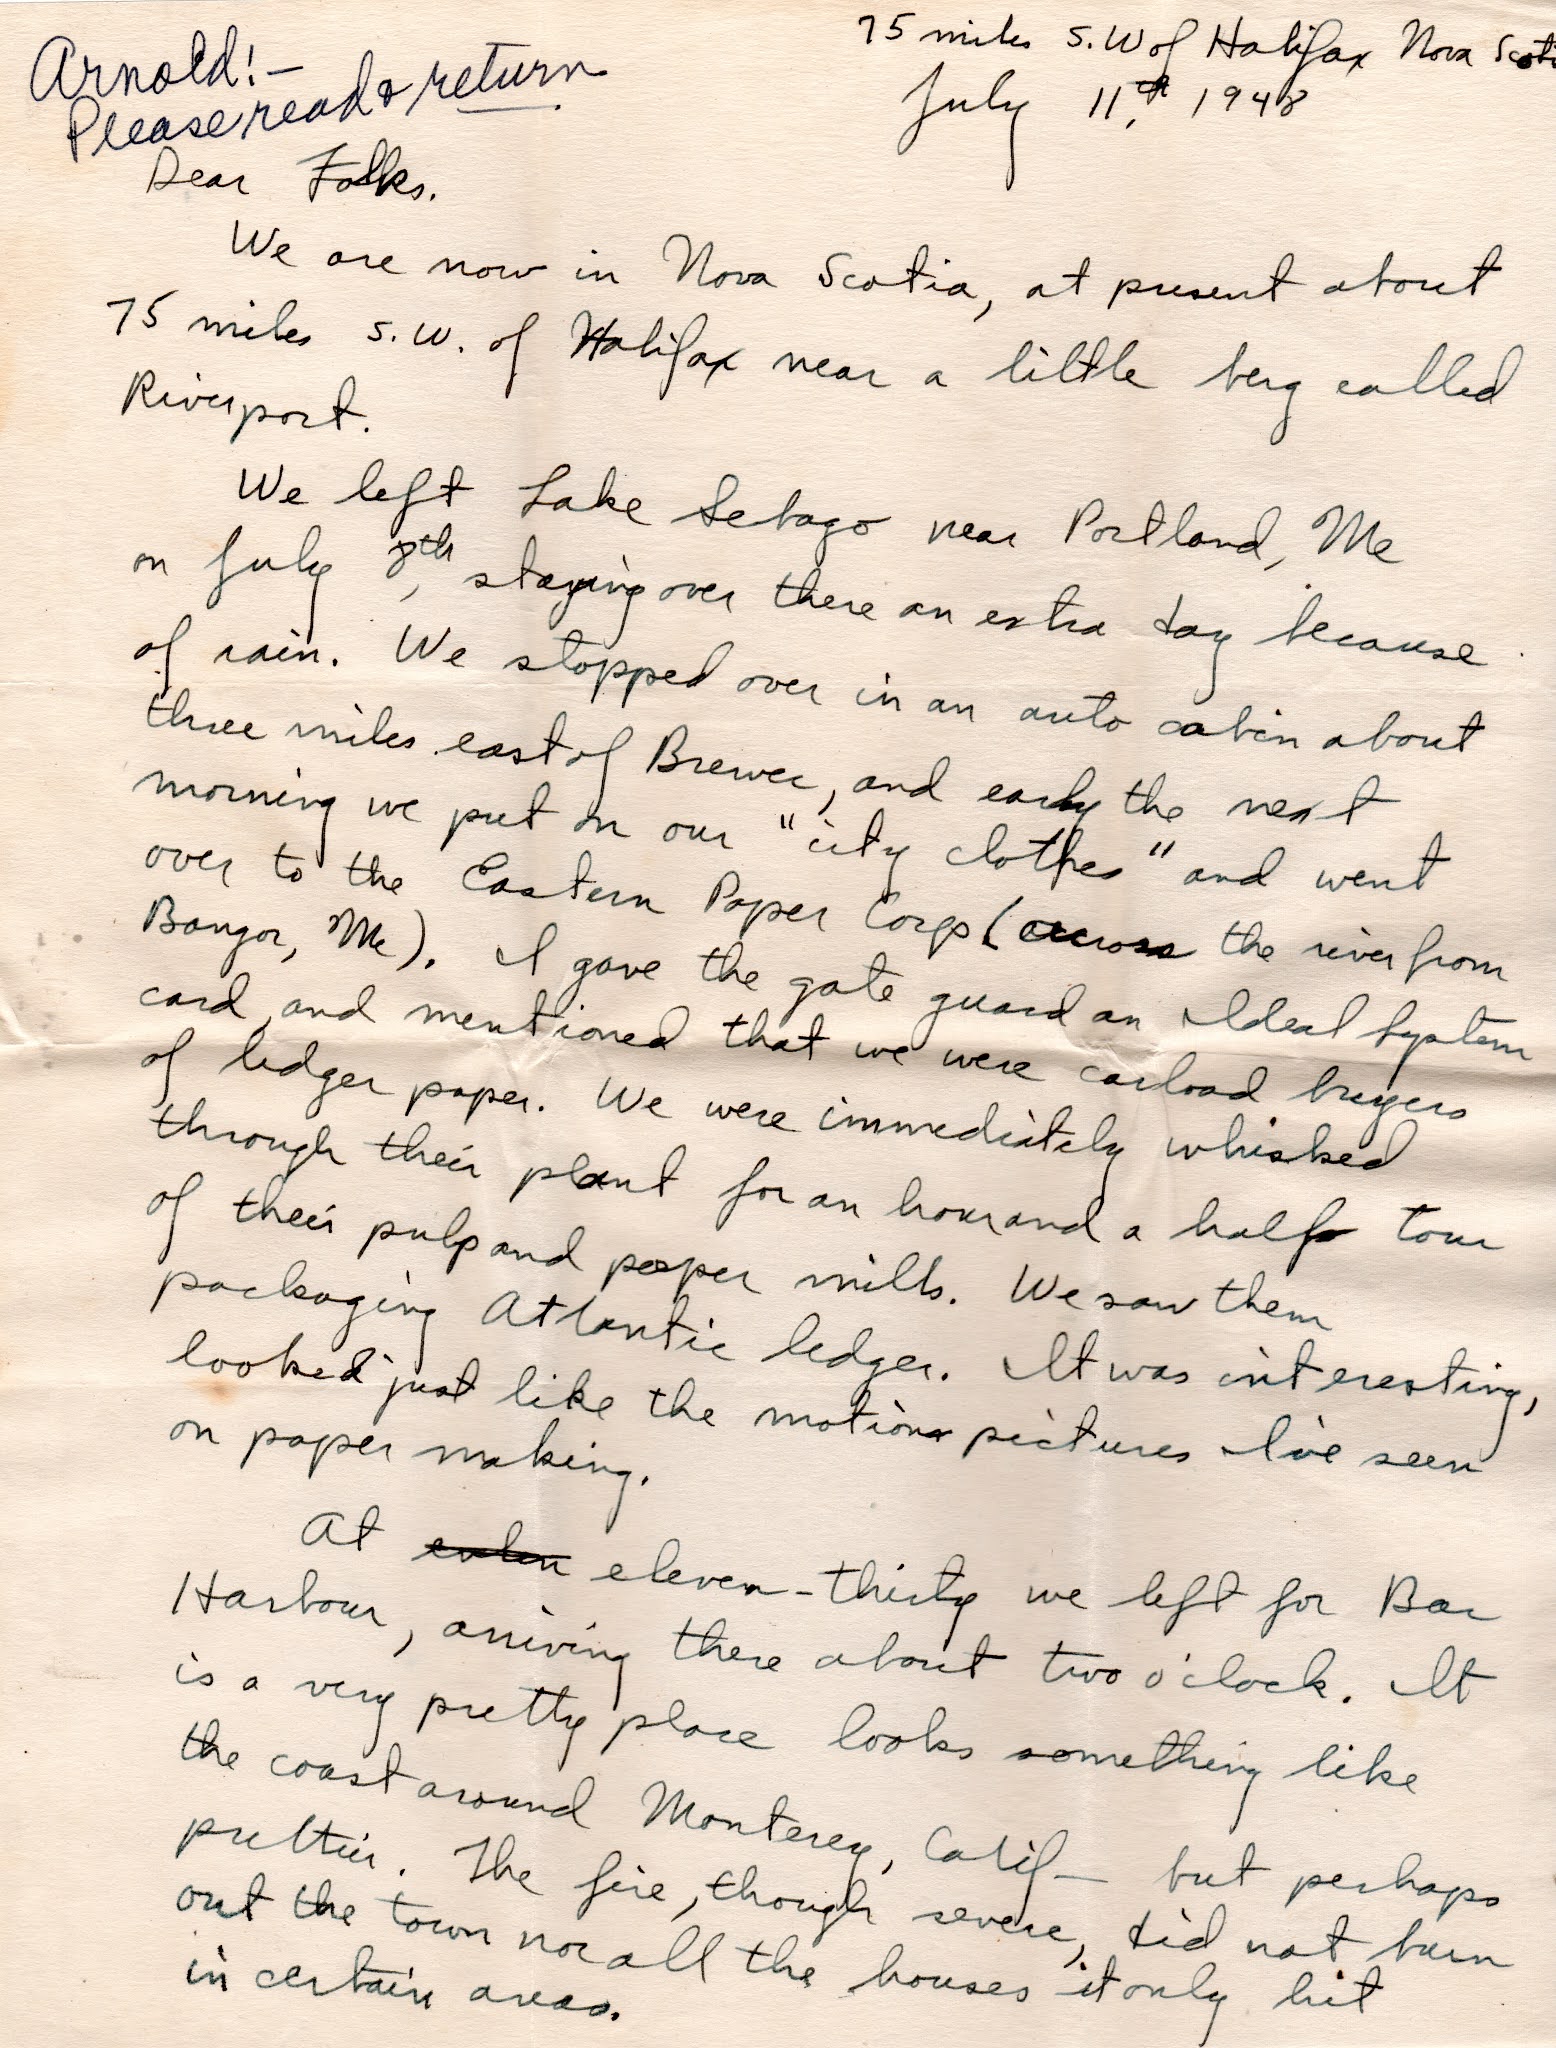 Arnold! —
Please read & return
75 miles S.W of Halifax Nova Scoti
July 11th, 1948
Dear Folks.
We are now in Nova Scotia, at present about
75 miles S.W. of Halifax near a little berg called
Riverport.
We left Lake Sebago near Portland, Me
on July 8th, staying over there an extra day because
of rain. We stopped over in an auto cabin about
three miles east of Brewer, and early the next
morning we put on our "city clothes" and went
over to the Eastern Paper Corp (across the river from
Bangor, Me). I gave the gate guard an Ideal System
card, and mentioned that we were carload buyers
of ledger paper. We were immediately whisked
through their plant for an hour and a half tour
of their pulp and paper mills. We saw them
packaging Atlantic ledger. It was interesting,
looked just like the motion pictures I've seen
on paper making.
At eleven-thirty we left for Bar
Harbour, arriving there about two o'clock. It
is a very pretty place looks something like
the coast around Monterey, Calif — but perhaps
prettier. The fire, though severe, did not burn
out the town nor all the houses it only hit
in certain areas.